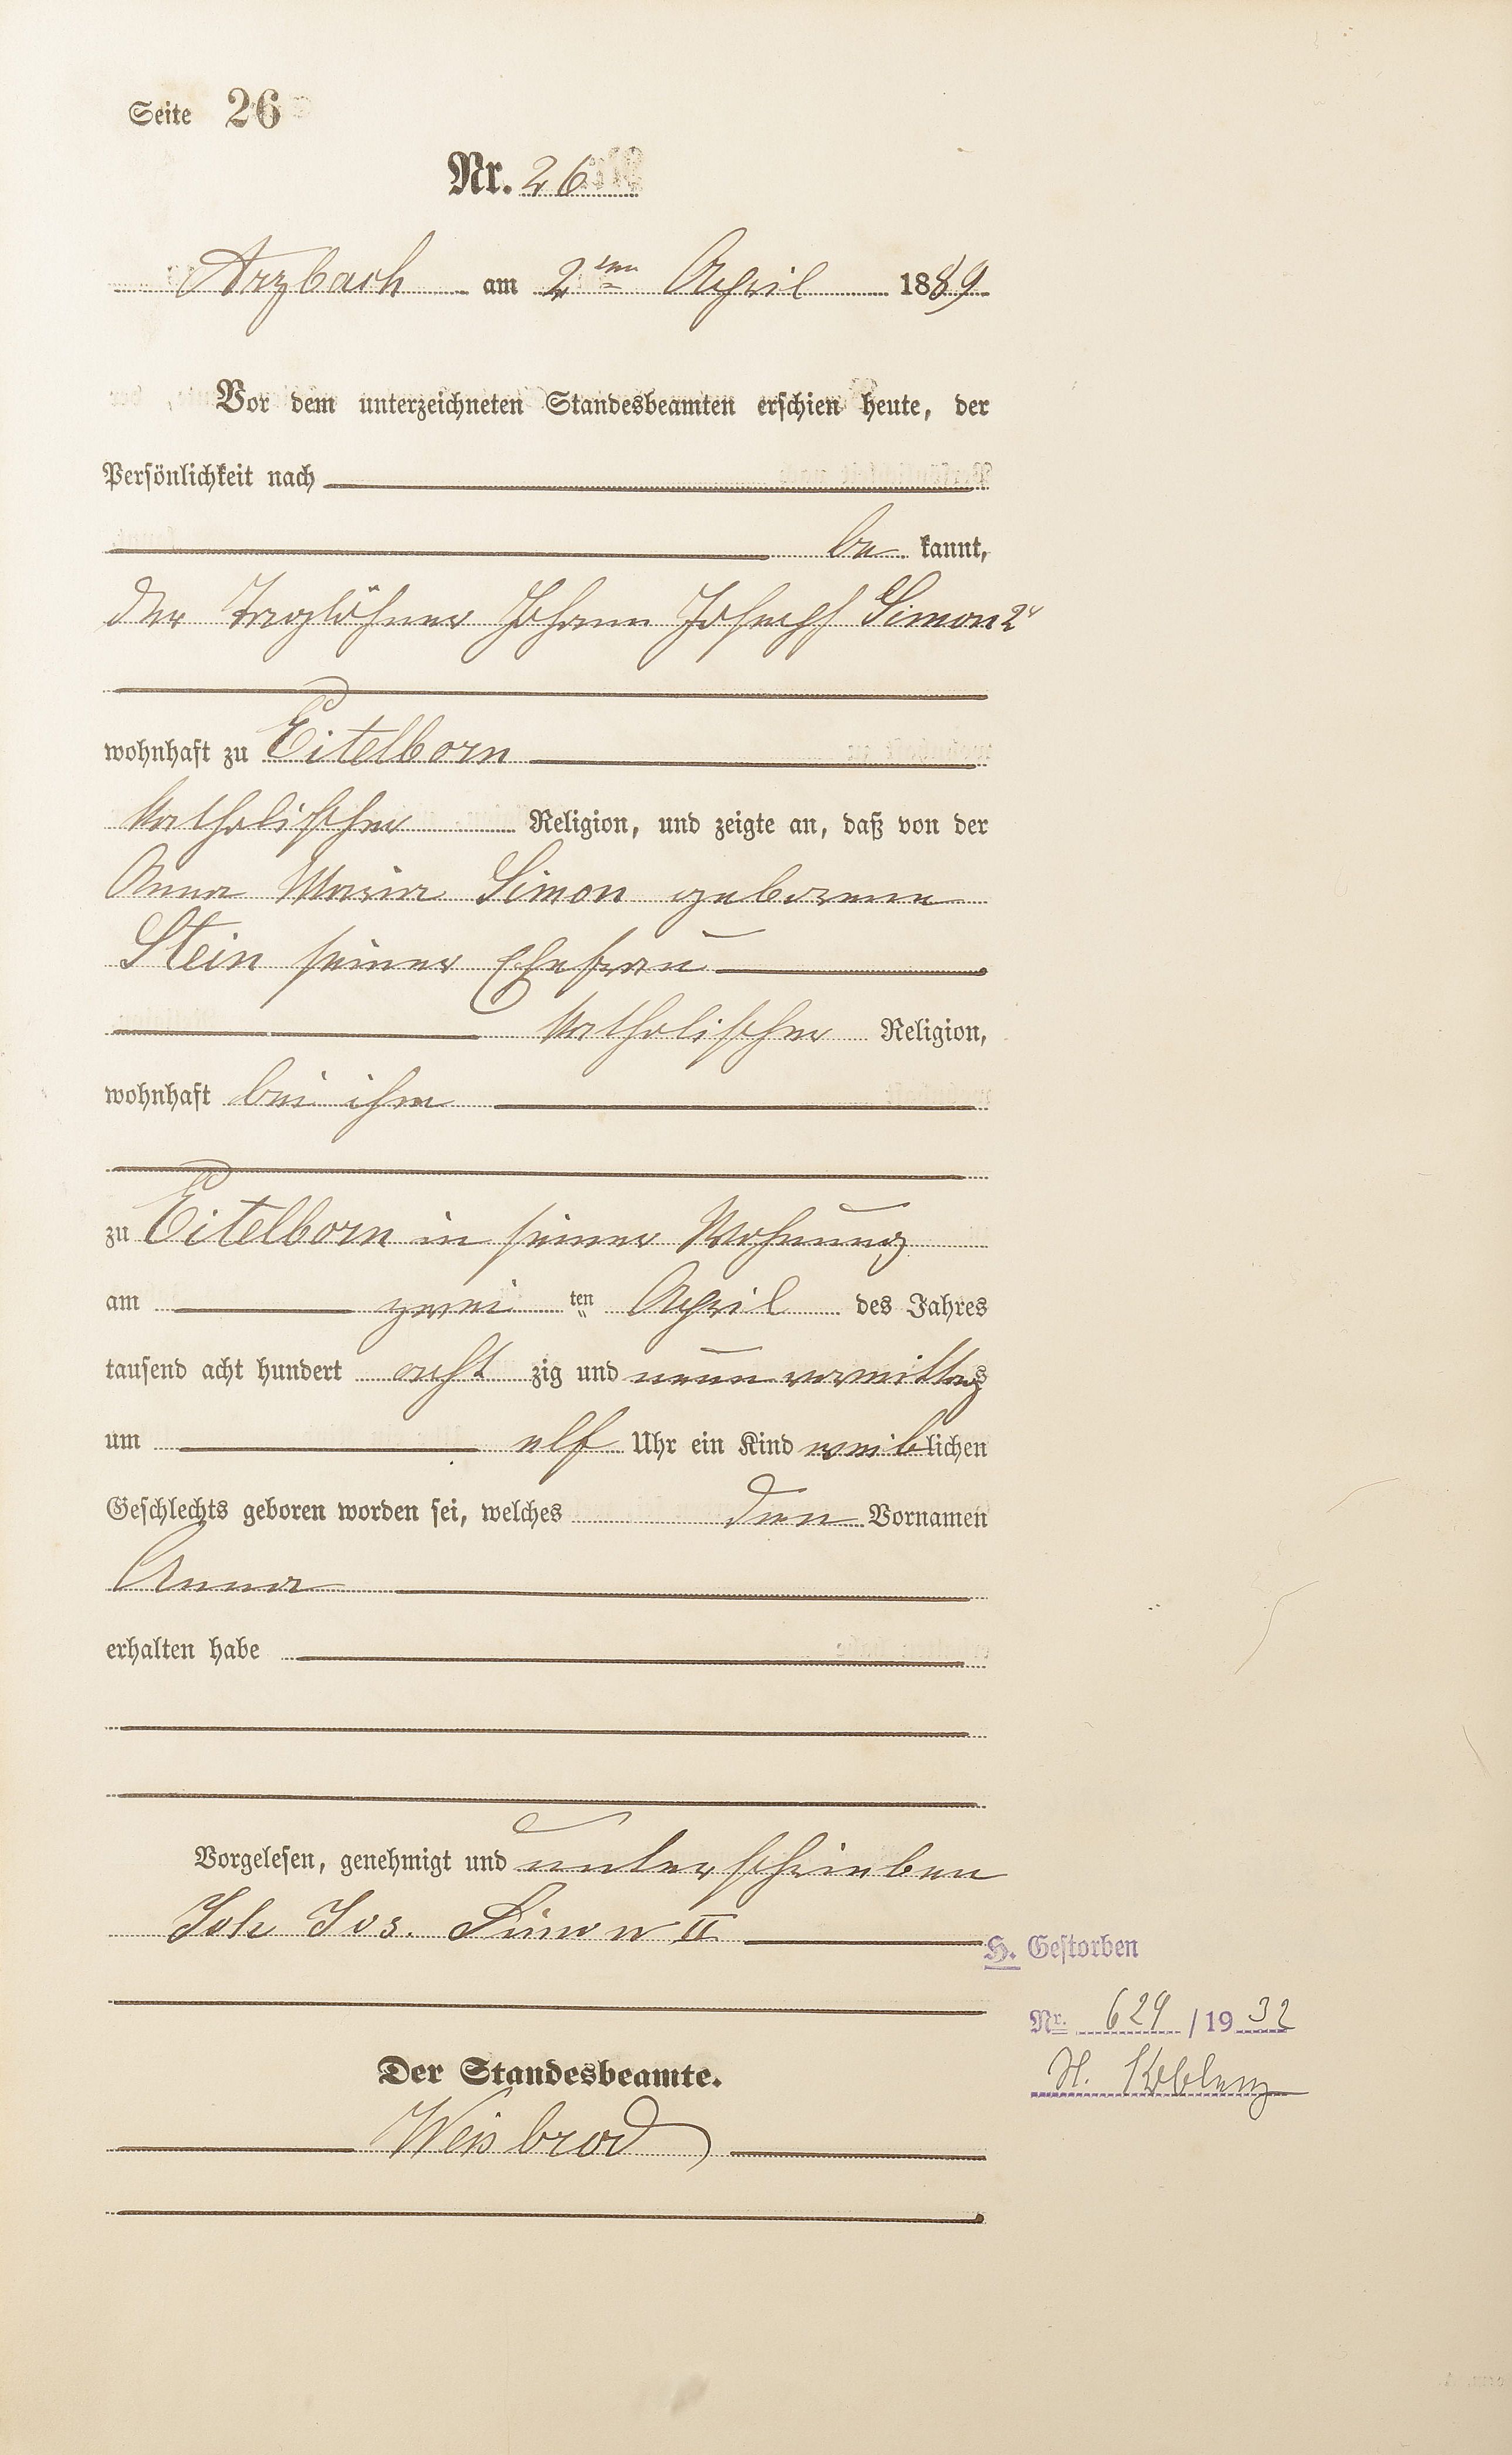 Seite 26
Nr. 26
Arzbach am 2ten April 1889
Vor dem unterzeichneten Standesbeamten erschien heute, der
Persönlichkeit nach
be kannt,
der Taglöhner Johann Joseph Simon 2r
wohnhaft zu Eitelborn
katholischer Religion, und zeigte an, daß von der
Anna Maria Simon geborene
Stein seiner Ehefrau
katholischer Religion,
wohnhaft bei ihm
zu Eitelborn in seiner Wohnung
am zwei ten April des Jahres
tausend acht hundert acht zig und neun vormittags
um elf Uhr ein Kind weiblichen
Geschlechts geboren worden sei, welches den Vornamen
Anna
erhalten habe
Vorgelesen, genehmigt und unterschrieben
Joh Jos. Simon II
H. Gestorben
Nr. 629 / 1932
St. Koblenz
Der Standesbeamte.
Weisbrod